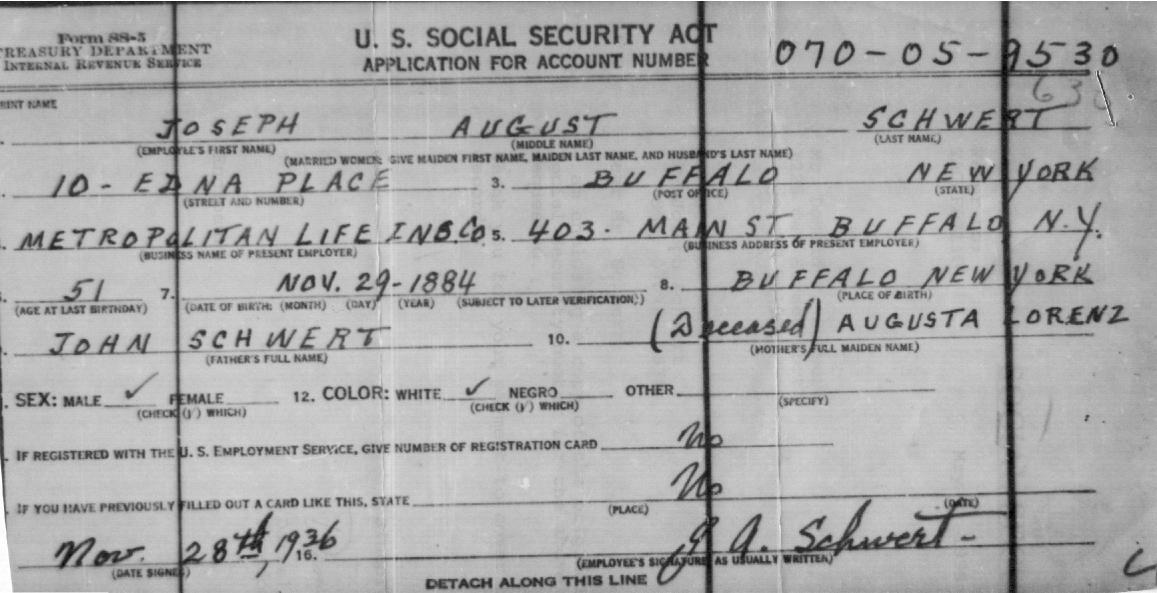 Form SS-5
TREASURY DEPARTMENT
INTERNAL REVENUE SERVICE
U. S. SOCIAL SECURITY ACT
APPLICATION FOR ACCOUNT NUMBER
070-05-9530
630
PRINT NAME
JOSEPH AUGUST SCHWERT
(EMPLOYEE'S FIRST NAME) (MIDDLE NAME) (LAST NAME)
(MARRIED WOMEN: GIVE MAIDEN FIRST NAME, MAIDEN LAST NAME, AND HUSBAND'S LAST NAME)
10- EDNA PLACE 3. BUFFALO NEW YORK
(STREET AND NUMBER) (POST OFFICE) (STATE)
METROPOLITAN LIFE INS.CO 5. 403. MAIN ST. BUFFALO N.Y.
(BUSINESS NAME OF PRESENT EMPLOYER) (BUSINESS ADDRESS OF PRESENT EMPLOYER)
51 7. NOV. 29-1884 8. BUFFALO NEW YORK
(AGE AT LAST BIRTHDAY) (DATE OF BIRTH: (MONTH) (DAY) (YEAR) (SUBJECT TO LATER VERIFICATION)) (PLACE OF BIRTH)
JOHN SCHWERT 10. (Deceased) AUGUSTA LORENZ
(FATHER'S FULL NAME) (MOTHER'S FULL MAIDEN NAME)
SEX: MALE ✓ FEMALE 12. COLOR: WHITE ✓ NEGRO OTHER
(CHECK (√) WHICH) (CHECK (√) WHICH) (SPECIFY)
IF REGISTERED WITH THE U. S. EMPLOYMENT SERVICE, GIVE NUMBER OF REGISTRATION CARD No
IF YOU HAVE PREVIOUSLY FILLED OUT A CARD LIKE THIS, STATE No
(PLACE) (DATE)
Nov. 28th, 1936 16. J. A. Schwert
(DATE SIGNED) (EMPLOYEE'S SIGNATURE, AS USUALLY WRITTEN)
DETACH ALONG THIS LINE